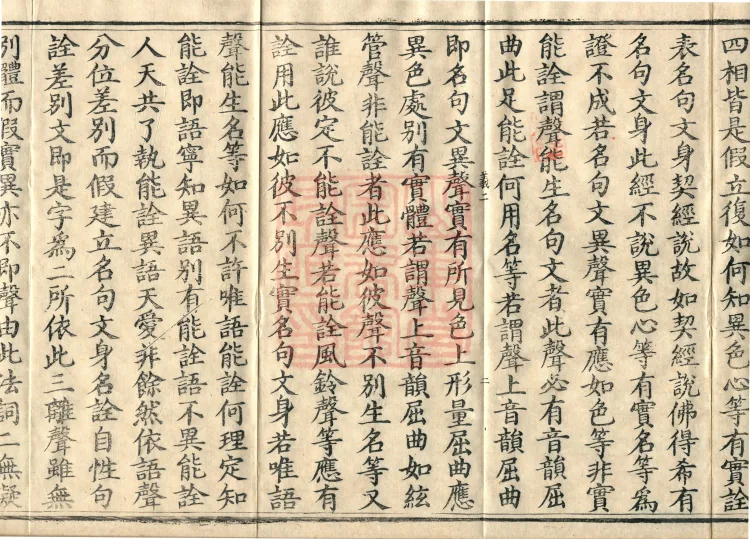 四相皆是假立復如何知異色心等有實詮
表名句文身契經說故如契經說佛得希有
名句文身此經不說異色心等有實名等爲
證不成若名句文異聲實有應如色等非實
能詮謂聲能生名句文者此聲必有音韻屈
曲此足能詮何用名等若謂聲上音韻屈曲
義二
二
即名句文異聲實有所見色上形量屈曲應
異色處別有實體若謂聲上音韻屈曲如絃
管聲非能詮者此應如彼聲不別生名等又
誰說彼定不能詮聲若能詮風鈴聲等應有
詮用此應如彼不別生實名句文身若唯語
聲能生名等如何不許唯語能詮何理定知
能詮即語寧知異語別有能詮語不異能詮
人天共了執能詮異語天愛非餘然依語聲
分位差別而假建立名句文身名詮自性句
詮差別文即是字爲二所依此三離聲雖無
別體而假實異亦不即聲由此法詞二無礙